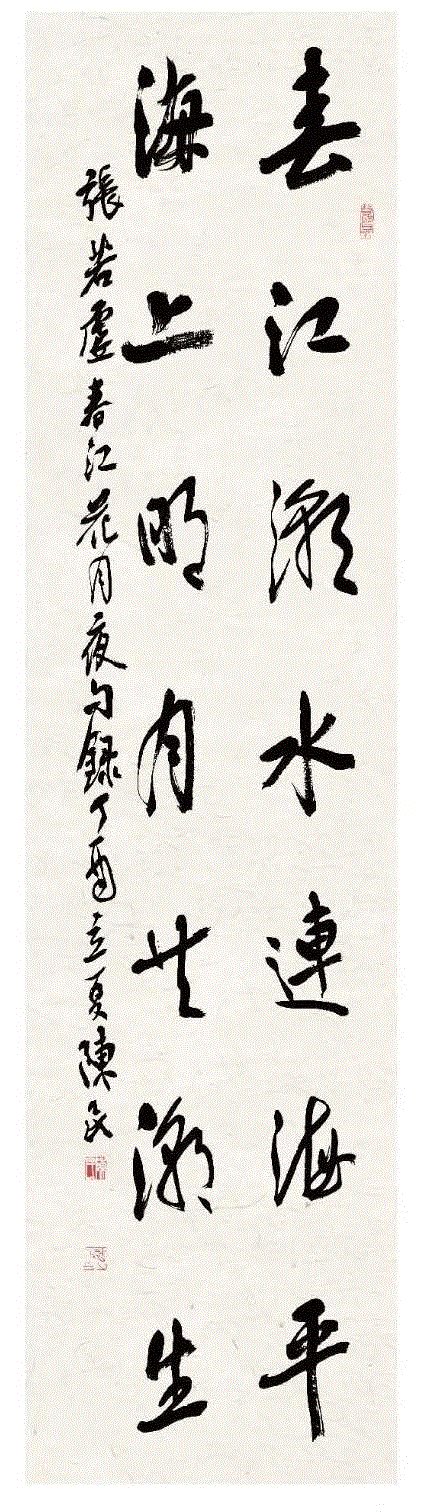 春江潮水連海平
海上明月共潮生
張若虛春江花月夜句錄丁酉立夏陳民